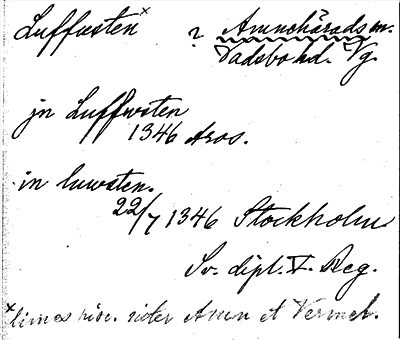 Luffusten x ? Amnehärads sn.
Vadsbo hd. Vg.
jn Luffwsten
1346 Aros.
in luwsten.
22/7 1346 Stockholm
Sv. dipl. V. Reg.
x limes sive. inter Amn et Vermel.